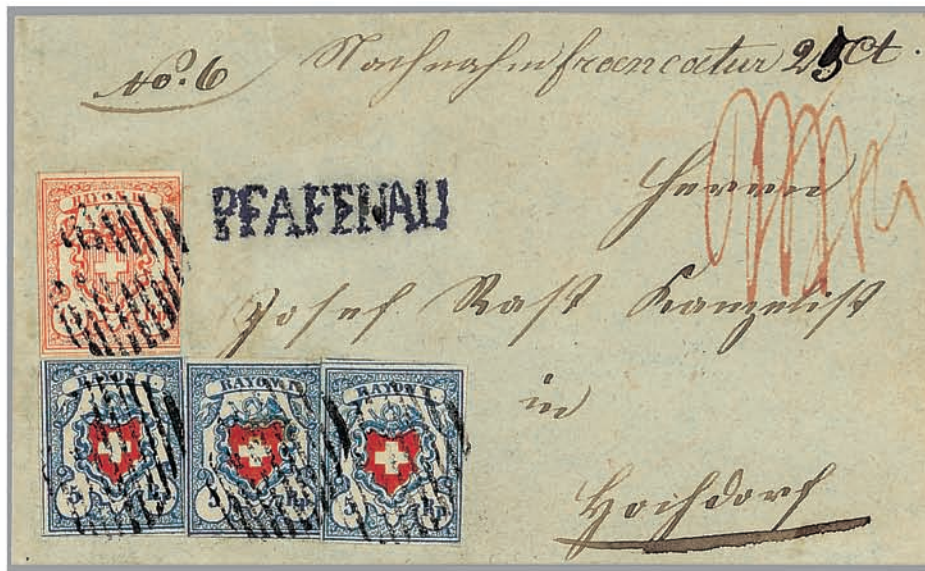 No. 6
Nachnahm francatur 25 Ct.
PFAFFNAU
Herren
Josef Rast Kanzelist
in
Hochdorf
RAYON III
RAYON I
5
RAYON I
5
RAYON I
5 Rp